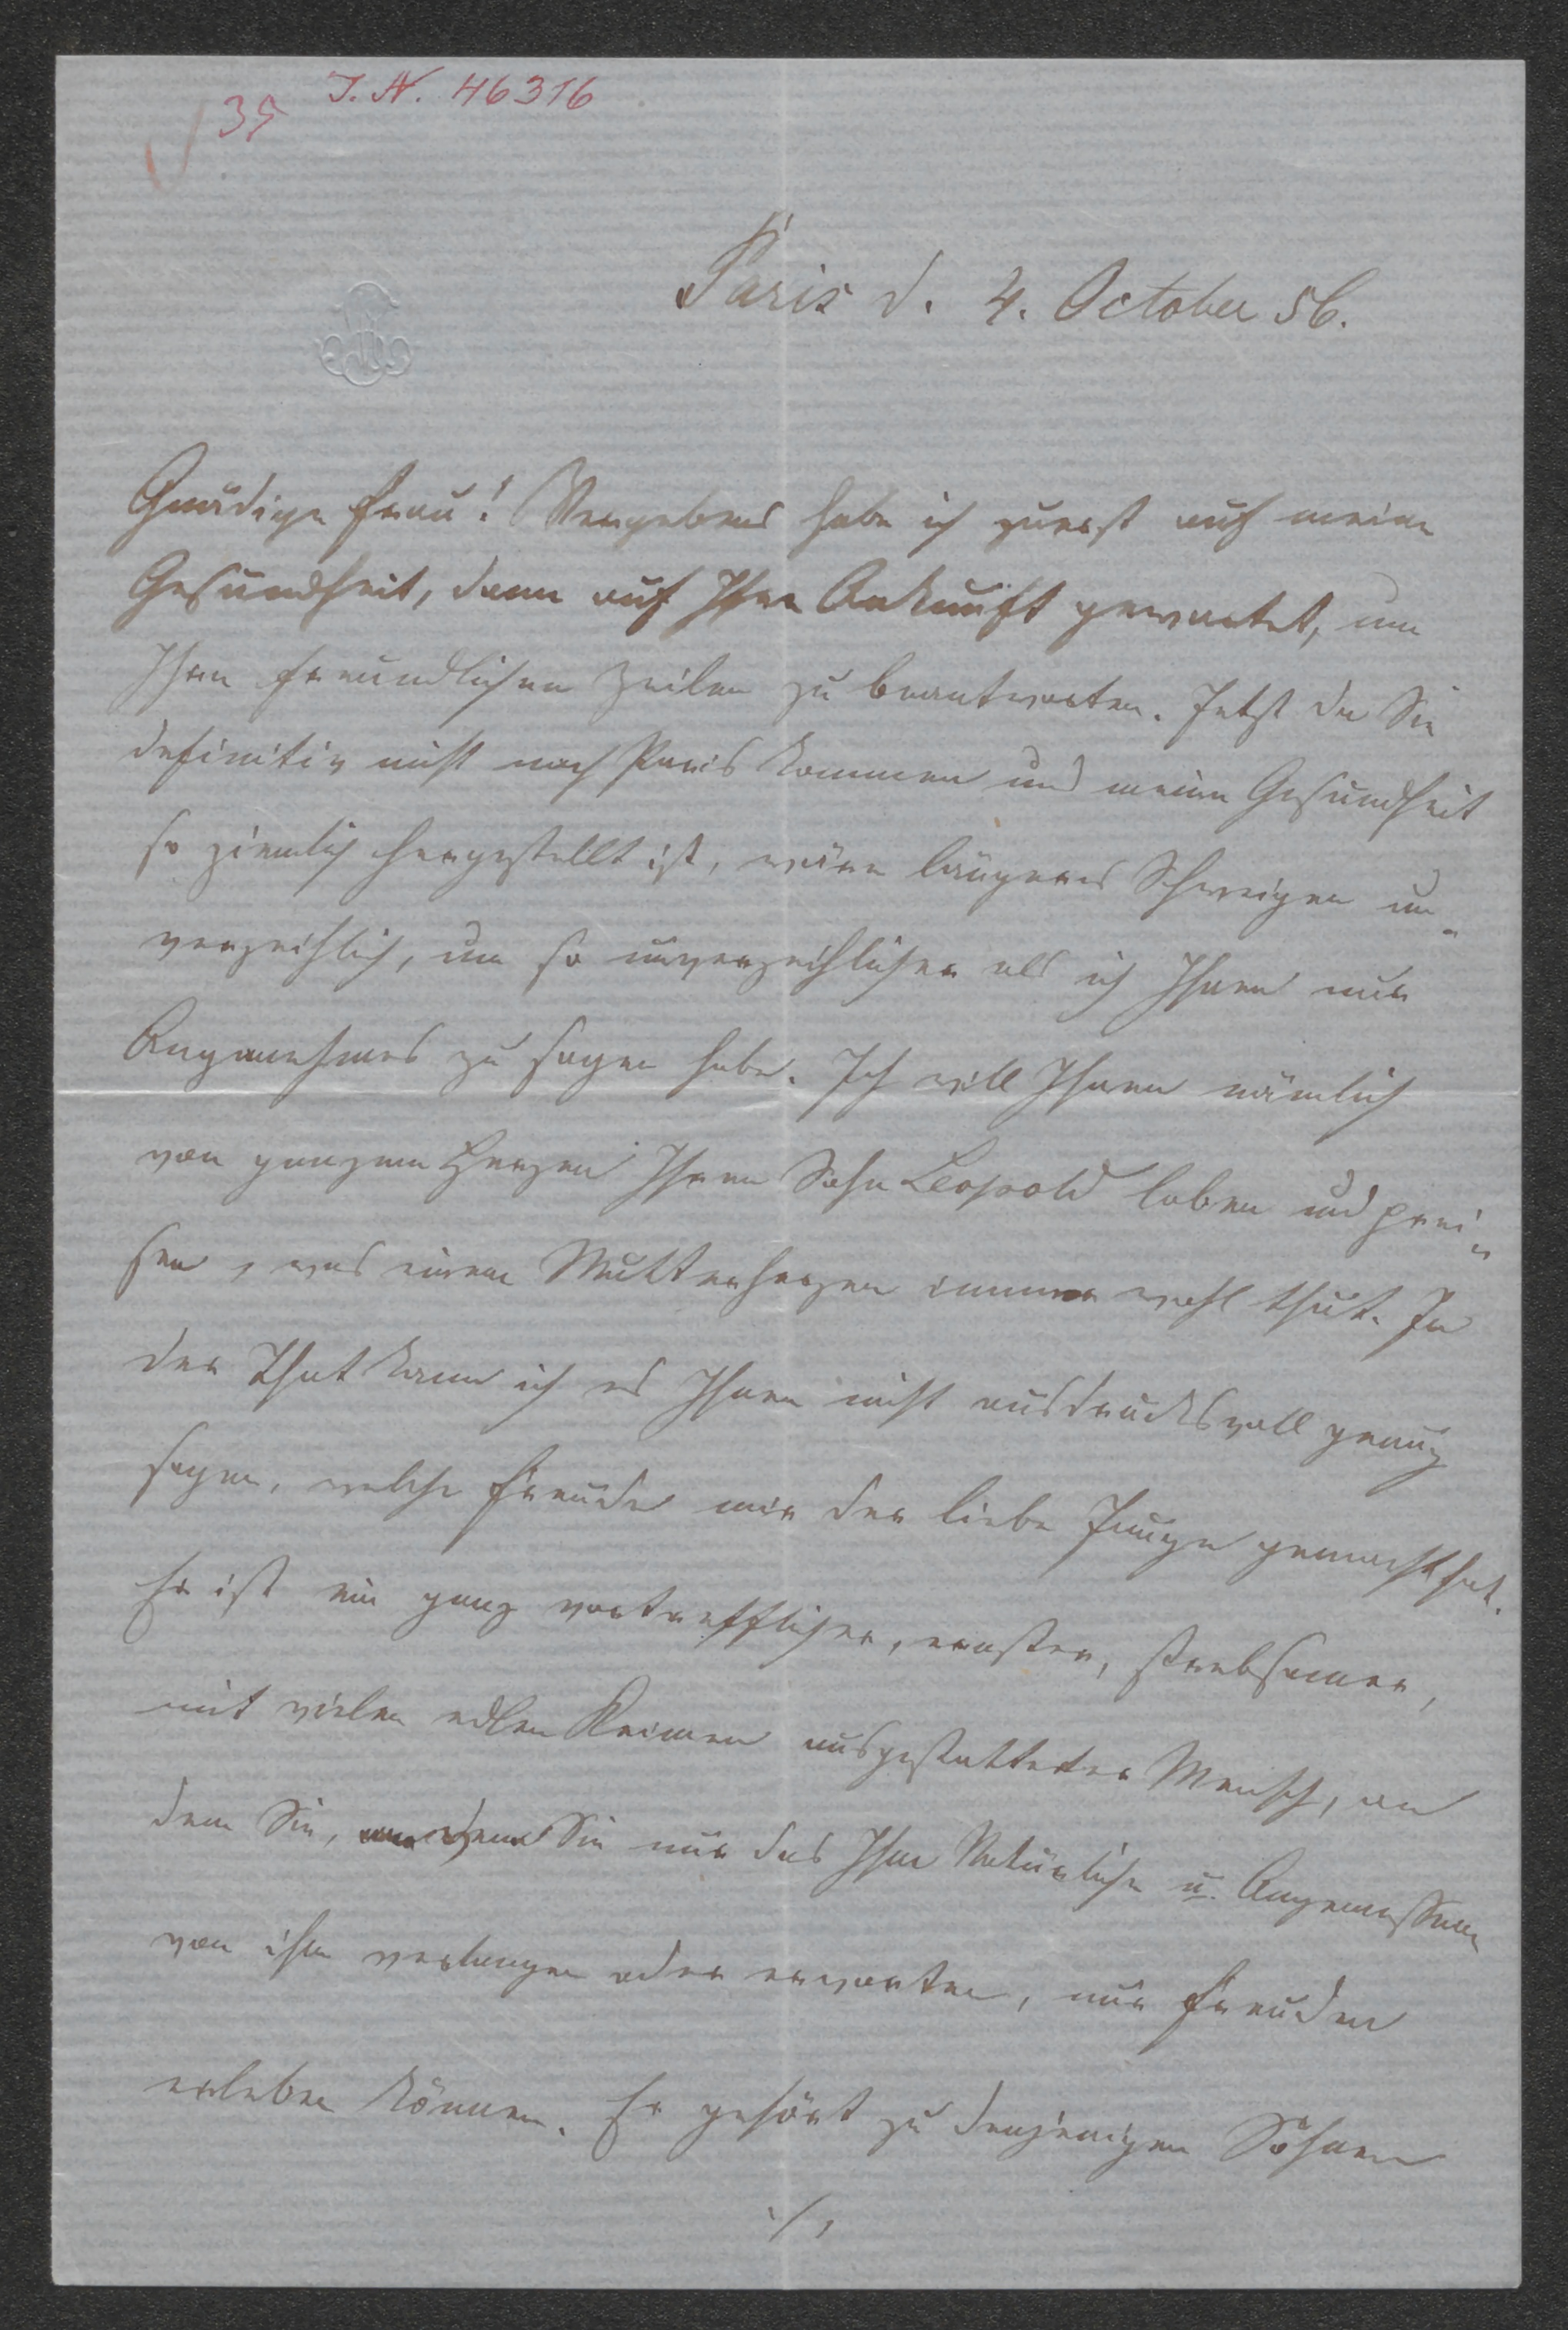 J. N. 46316
35
Paris d. 4. October 56.
Gnädige Frau! Vergebens habe ich zuerst auf meine
Gesundheit, dann auf Ihre Ankunft gewartet, um
Ihre freundlichen Zeilen zu beantworten. Jetzt da Sie
definitiv nicht nach Paris kommen und meine Gesundheit
so ziemlich hergestellt ist, wäre längeres Schweigen un-
verzeihlich, um so unverzeihlicher als ich Ihnen nur
Angenehmes zu sagen habe. Ich will Ihnen nämlich
von ganzem Herzen Ihren Sohn Leopold loben und prei-
sen, was einem Mutterherzen immer wohl thut. In
der That kann ich es Ihnen nicht ausdrucksvoll genug
sagen, welche Freude mir der liebe Junge gemacht hat.
Er ist ein ganz vortrefflicher, ernster, strebsamer,
mit vielen edlen Keimen ausgestatteter Mensch, an
dem Sie, wenn Sie nur das Ihm Natürliche u. Angemessene
von ihm verlangen oder erwarten, nur Freuden
erleben können. Er gehört zu denjenigen Söhnen
./.